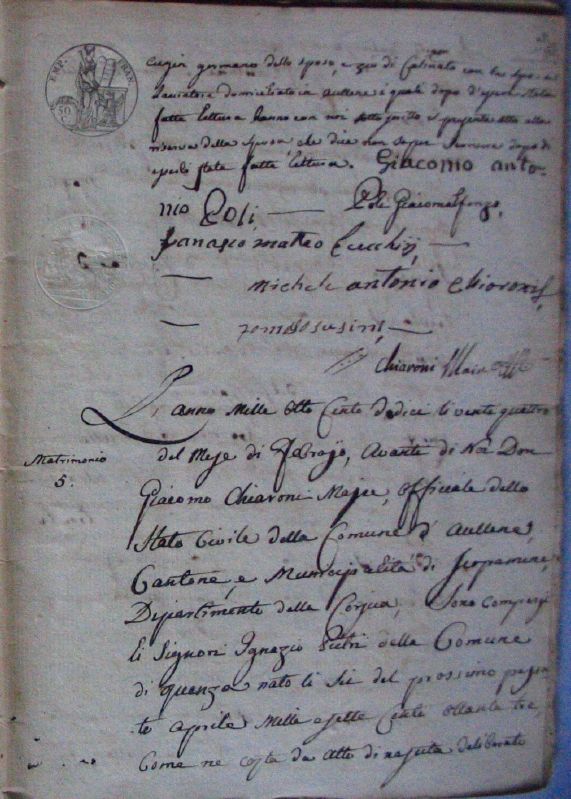 EMP. FRAN.
50
Cugin germano dello sposo, e zio di con la sposa
domiciliati in aullene i quali dopo d'
fatta lettura hanno con noi sotto scritto il presente atto alla
riserva della sposa, che di non saper scrivere dopo di
stata fatta lettura. Giacomo anto-
nio Poli, — Poli Giacomalfonzo,
matteo Lucchij —
— Michele antonio Chiaroni,
— —
Chiaroni Maire
L'anno Mille Otto Cento dodeci li vente quattro
Matrimonio
5.
del Mese di Febrajo, Avante di Noi Don
Giacomo Chiaroni Maire, officiale dello
Stato Civile della Comune d'Aullene,
Cantone, e Municipalità di Scopamene,
Dipartimento della Corsica, Sono Comparsi
li Signori Ignazio Pietri della Comune
di quenza nato li sei del prossimo passa
to aprile Mille e sette Cento ottanta tre,
Come ne costa da atto di nascita deliberato